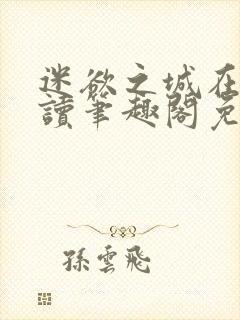 迷欲之城在
讀筆趣閣免
孫雲飛